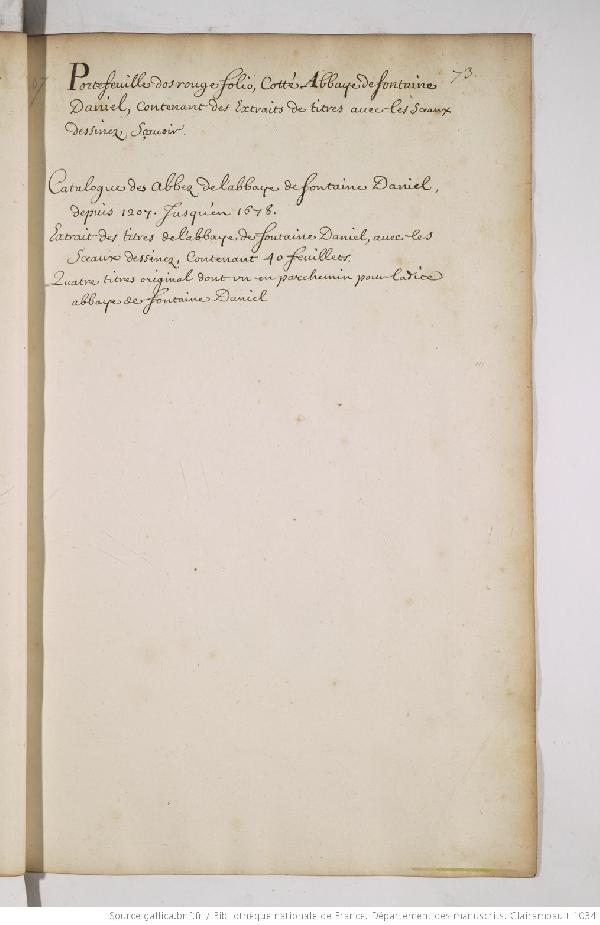 73.
Portefeuille dos rouge folio, Cotté Abbaye de fontaine
Daniel, Contenant des Extraits de titres avec les Sceaux
dessinez, Sçavoir.
Catalogue des Abbez de l'abbaye de fontaine Daniel,
depuis 1207. Jusqu'en 1678.
Extrait des titres de l'abbaye de fontaine Daniel, avec les
Sceaux dessinez, Contenant 40 feuillets.
Quatre titres original dont vn en parchemin pour ladite
abbaye de fontaine Daniel
Source gallica.bnf.fr / Bibliothèque nationale de France. Département des manuscrits. Clairambault 1034